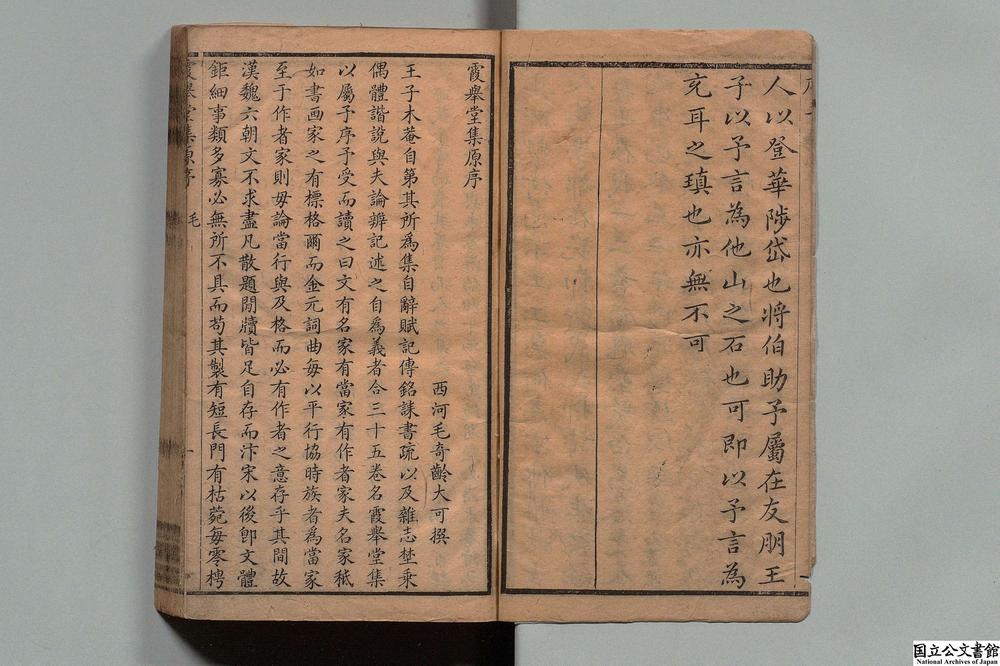 人以登華陟岱也將伯助予屬在友朋王
子以予言為他山之石也可即以予言為
充耳之瑱也亦無不可
霞舉堂集原序
西河毛奇齡大可撰
王子木菴自第其所爲集自辭賦記傳銘誄書疏以及雜志埜乗
偶體諧說與夫論辨記述之自爲義者合三十五卷名霞舉堂集
以屬予序予受而讀之曰文有名家有當家有作者家夫名家秪
如書画家之有標格爾而金元詞曲每以平行協時族者爲當家
至于作者家則毋論當行與及格而必有作者之意存乎其間故
漢魏六朝文不求盡凡散題閒牘皆足自存而汴宋以後卽文體
鉅細事類多寡必無所不具而苟其製有短長門有枯菀每零椁
霞舉堂集原序
毛
一
国立公文書館
National Archives of Japan